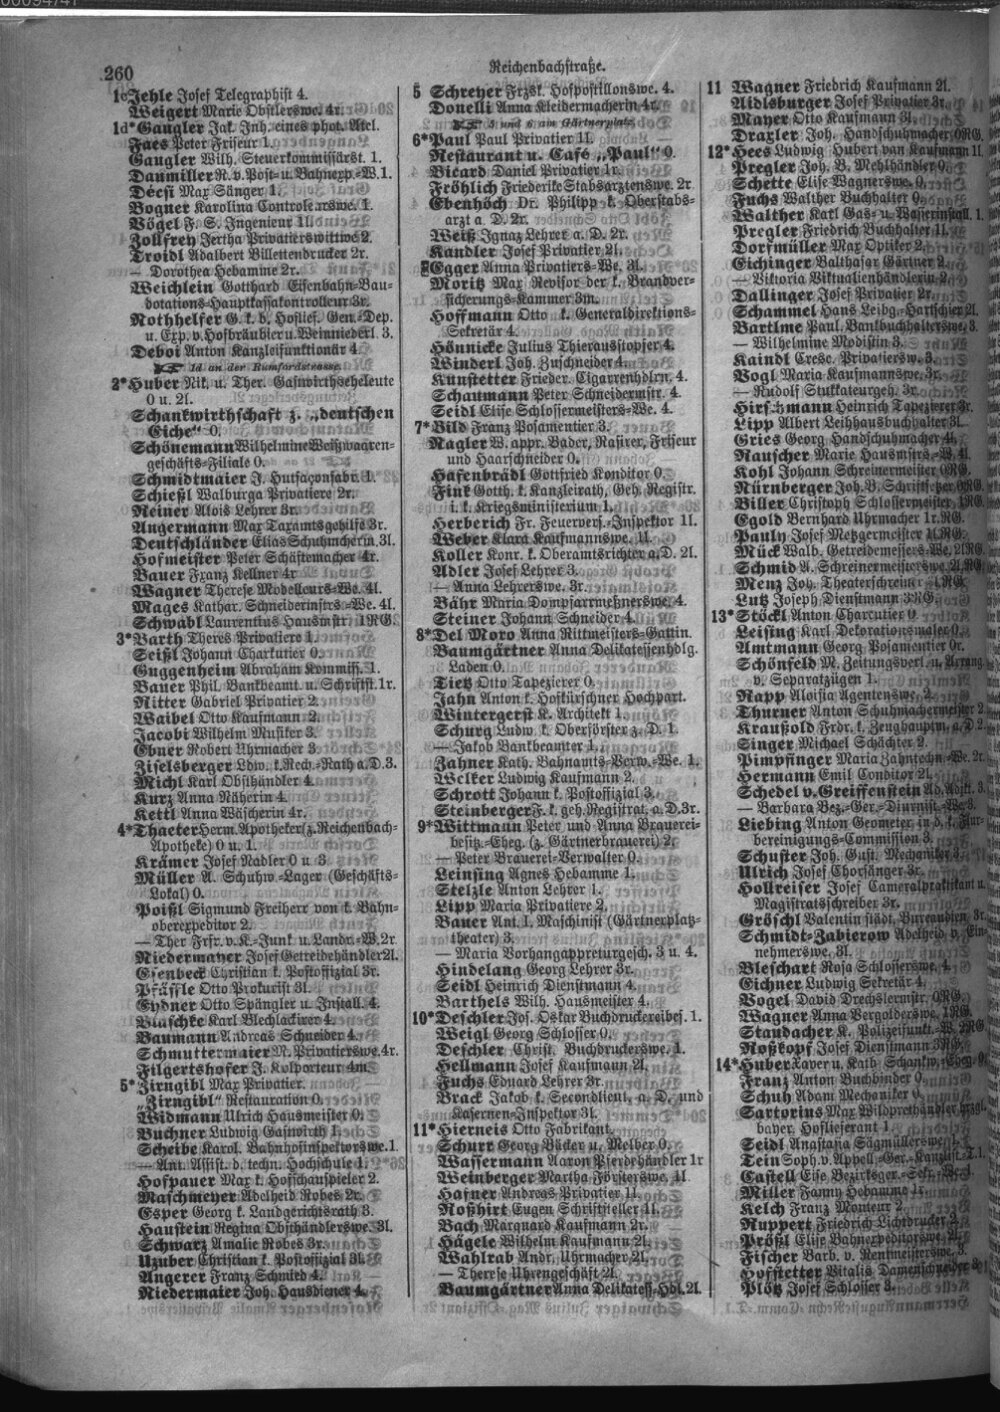 260
Reichenbachstraße.
1c Jehle Josef Telegraphist 4.
Weigert Marie Obstlerswe. 4r.
1d* Gaugler Jak. Inh. eines phot. Atel.
Faes Peter Friseur 1.
Gaugler Wilh. Steuerkommissärst. 1.
Daumiller R. v. Post- u. Bahnexp.-W. 1.
Décsi Max Sänger 1.
Bogner Karolina Controle.rswe. 1.
Vögel F. S. Ingenieur 1l.
Zollfrey Jertha Privatierswittwe 2.
Troidl Adalbert Billettendrucker 2r.
— Dorothea Hebamme 2r.
Weichlein Gotthard Eisenbahn-Bau-
dotations-Hauptkassakontrolleur 3r.
Nothhelfer G. k. b. Hoflief. Gen.-Dep.
u. Exp. v. Hofbräubier u. Weinniederl. 3.
Deboi Anton Kanzleifunktionär 4.
1d an der Rumfordstrasse.
2* Huber Nik. u. Ther. Gastwirthseheleute
0 u. 2l.
Schankwirthschaft z. „deutschen
Eiche“ 0.
Schönemann Wilhelmine Weißwaaren-
geschäfts-Filiale 0.
Schmidtmaier J. Hutfaçonfabr. 1.
Schießl Walburga Privatiere 2r.
Reiner Alois Lehrer 3r.
Angermann Max Taxamtsgehilfe 3r.
Deutschländer Elias Schuhmacherin 3l.
Hofmeister Peter Schäftemacher 4r.
Bauer Franz Kellner 4r
Wagner Therese Modelleurs-We. 4l.
Mages Kathar. Schneidermstrs.-We. 4l.
Schwabl Laurentius Hausmstr. 1RG.
3* Barth Theres Privatiere 1.
Seißl Johann Charkutier 0.
Guggenheim Abraham Kommiss. 1.
Bauer Phil. Bankbeamt. u. Schriftst. 1r.
Ritter Gabriel Privatier 2.
Waibel Otto Kaufmann 2.
Jacobi Wilhelm Musiker 3.
Ebner Robert Uhrmacher 3.
Ziselsberger Ldw. k. Rech.-Rath a. D. 3.
Michl Karl Obsthändler 4.
Kurz Anna Näherin 4.
Kettl Anna Wäscherin 4r.
4* Thaeter Herm. Apotheker (z. Reichenbach-
Apotheke) 0 u. 1.
Krämer Josef Nadler 0 u 3
Müller A. Schuhw.-Lager (Geschäfts-
Lokal) 0.
Poißl Sigmund Freiherr von k. Bahn-
oberexpeditor 2.
— Ther Frfr. v. K.-Junk u. Landr.-W. 2r
Niedermayer Josef Getreidehändler 2l.
Esenbeck Christian k. Postoffizial 3r.
Pfäffle Otto Prokurist 3l.
Eydner Otto Spängler u. Install. 4.
Blaschke Karl Blechlackirer 4.
Baumann Andreas Schneider 4.
Schmuttermaier N. Privatierswe. 4r.
Filgertshofer J. Kolporteur 4m.
5* Zirngibl Max Privatier.
„Zirngibl“ Restauration 0.
Widmann Ulrich Hausmeister 0.
Buchner Ludwig Gastwirth 1.
Scheibe Karol. Bahnhofinspektorswe. 1.
— Ant. Assist. d. techn. Hochschule 1.
Hofpauer Max k. Hofschauspieler 2.
Maschmeyer Adelheid Robes 2r.
Esper Georg k. Landgerichtsrath 3.
Haustein Regina Obsthändlerswe. 3l.
Schwarz Amalie Robes 3r.
Uzuber Christian k. Postoffizial 3l.
Angerer Franz Schmied 4.
Niedermaier Joh. Hausdiener 4.
5 Schreyer Frzsk. Hofpostillonswe. 4.
Donelli Anna Kleidermacherin 4r.
5 und 6 am Gärtnerplatz.
6* Paul Paul Privatier 1l.
Restaurant u. Café „Paul“ 0.
Bicard Daniel Privatier 1r.
Fröhlich Friederike Stabsarztenswe. 2r
Ebenhöch Dr. Philipp k. Oberstabs-
arzt a. D. 2r.
Weiß Ignaz Lehrer a. D. 2r.
Kandler Josef Privatier 2l.
Egger Anna Privatiers-We. 3l.
Moritz Max Revisor der k. Brandver-
sicherungs-Kammer 3m.
Hoffmann Otto k. Generaldirektions-
Sekretär 4.
Hönnicke Julius Thierausstopfer 4.
Winderl Joh. Zuschneider 4.
Kunstetter Frieder. Cigarrenhdlrn. 4.
Schaumann Peter Schneidermstr. 4.
Seidl Elise Schlossermeisters-We. 4.
7* Bild Franz Posamentier 3.
Nagler W. appr. Bader, Rasirer, Friseur
und Haarschneider 0.
Hafenbrädl Gottfried Konditor 0.
Fink Gotth. k. Kanzleirath, Geh. Registr.
i. k. Kriegsministerium 1.
Herberich Fr. Feuervers.-Inspektor 1l.
Weber Klara Kaufmannswe. 1l.
Koller Konr. k. Oberamtsrichter a. D. 2l.
Adler Josef Lehrer 3.
— Anna Lehrerswe. 3r.
Bähr Maria Dompfarrmeßnerswe. 4.
Steiner Johann Schneider 4.
8* Del Moro Anna Rittmeisters-Gattin.
Baumgärtner Anna Delikatessenhdlg.
Laden 0.
Tietz Otto Tapezierer 0.
Jahn Anton k. Hofkürschner Hochpart.
Wintergerst K. Architekt 1.
Schurg Ludw. k. Oberförster z. D. 1.
— Jakob Bankbeamter 1.
Zahner Kath. Bahnamts-Verw.-We. 1.
Welker Ludwig Kaufmann 2.
Schrott Johann k. Postoffizial 3.
Steinberger F. k. geh. Registrat. a. D. 3r.
9* Wittmann Peter und Anna Brauerei-
besitz.-Eheg. (z. Gärtnerbrauerei) 2r.
— Peter Brauerei-Verwalter 0.
Leinsing Agnes Hebamme 1.
Stelzle Anton Lehrer 1.
Lipp Maria Privatiere 2.
Bauer Ant. I. Maschinist (Gärtnerplatz-
theater) 3.
— Maria Vorhangappreturgesch. 3 u. 4.
Hindelang Georg Lehrer 3r.
Seidl Heinrich Dienstmann 4.
Barthels Wilh. Hausmeister 4.
10* Deschler Jos. Oskar Buchdruckereibes. 1.
Weigl Georg Schlosser 0.
Deschler Christ. Buchdruckerswe. 1.
Hellmann Josef Kaufmann 2l.
Fuchs Eduard Lehrer 3r.
Brack Jakob k. Secondlieut. a. D. und
Kasernen-Inspektor 3l.
11* Hierneis Otto Fabrikant.
Schurr Georg Bäcker u. Melber 0.
Wassermann Aaron Pferdehändler 1r
Weinberger Martha Försterswe. 1l
Hafner Andreas Privatier 1l.
Roßhirt Eugen Schriftsteller 1l.
Bach Marquard Kaufmann 2r.
Hägele Wilhelm Kaufmann 2l.
Wahlrab Andr. Uhrmacher 2l.
— Therese Uhrengeschäft 2l.
Baumgärtner Anna Delikatess.-Hdl. 2l.
11 Wagner Friedrich Kaufmann 2l.
Aidlsburger Josef Privatier 3r.
Mayer Otto Kaufmann 3l.
Draxler Joh. Handschuhmacher 0RG.
12* Hees Ludwig Hubert van Kaufmann 1l.
Pregler Joh. B. Mehlhändler 0.
Schette Elise Wagnerswe. 0.
Fuchs Walther Buchhalter 0.
Walther Karl Gas- u. Wasserinstall. 1.
Pregler Friedrich Buchhalter 1l.
Dorfmüller Max Optiker 2.
Eichinger Balthasar Gärtner 2.
— Viktoria Viktualienhändlerin 2.
Dallinger Josef Privatier 2r.
Schammel Hans Leibg.-Hartschier 2l.
Bartlme Paul. Bankbuchhalterswe. 3.
— Wilhelmine Modistin 3.
Kaindl Cresc. Privatiersw. 3.
Vogl Maria Kaufmannswe. 3r.
— Rudolf Stukkateurgeh. 3r.
Hirschmann Heinrich Tapezierer 3r.
Lipp Albert Leihhausbuchhalter 3l.
Gries Georg Handschuhmacher 4l.
Rauscher Marie Hausmstrs.-W. 4l.
Kohl Johann Schreinermeister 0RG.
Nürnberger Joh. B. Schriftsetzer 0RG.
Biller Christoph Schlossermeister 1RG.
Egold Bernhard Uhrmacher 1r. RG.
Pauly Josef Metzgermeister 1lRG.
Mück Walb. Getreidemessers-We. 2lRG.
Schmid A. Schreinermeisterswe. 2lRG.
Menz Joh. Theaterschreiner 4RG.
Lutz Joseph Dienstmann 3RG.
13* Stöckl Anton Charcutier 0.
Leising Karl Dekorationsmaler 0.
Amtmann Georg Posamentier 0r.
Schönfeld M. Zeitungsverl. u. Arrang.
v. Separatzügen 1.
Rapp Aloisia Agentenswe. 2.
Thurner Anton Schuhmachermeister 2.
Kraußold Frdr. k. Zeughauptm. a. D. 2.
Singer Michael Schächter 2.
Pimpfinger Maria Zahntechn.-We. 2r.
Hermann Emil Conditor 2l.
Schedel v. Greiffenstein Ad. Adjkt. 3.
— Barbara Bez.-Ger.-Diurnist.-We. 3.
Liebing Anton Geometer in d. k. Flur-
bereinigungs-Commission 3.
Schuster Joh. Gust. Mechaniker 3.
Ulrich Josef Chorsänger 3r.
Hollreiser Josef Cameralpraktikant u.
Magistratschreiber 3r.
Gröschl Valentin städt. Bureaudien. 3r.
Schmidt-Zabierow Adelheid v. Ein-
nehmerswe. 3l.
Bleschart Rosa Schlosserswe. 4.
Eichner Ludwig Sekretär 4.
Vogel David Drechslermstr. 0RG.
Wagner Anna Vergolderswe. 1RG.
Staudacher K. Polizeifunkt.-W. 2RG
Roßkopf Josef Dienstmann 3RG.
14* Huber Xaver u. Kath. Schankw.-Eheg. 0.
Franz Anton Buchbinder 0.
Schuh Adam Mechaniker 0.
Sartorius Max Wildprethändler, kgl.
bayer. Hoflieferant 1
Seidl Anastasia Sägmüllerswe. 1.
Tein Soph. v. Appell.-Ger.-Kanzlist.-T. 1.
Castell Elise Bezirksger.-Sekr.-We. 1.
Miller Fanny Hebamme 1r.
Kelch Franz Monteur 2.
Ruppert Friedrich Lichtdrucker 2.
Prößl Elise Bahnexpeditorswe. 2l.
Fischer Barb. v. Rentmeisterswe. 3.
Hofstetter Vitalis Damenschneider 3l
Plötz Josef Schlosser 3.